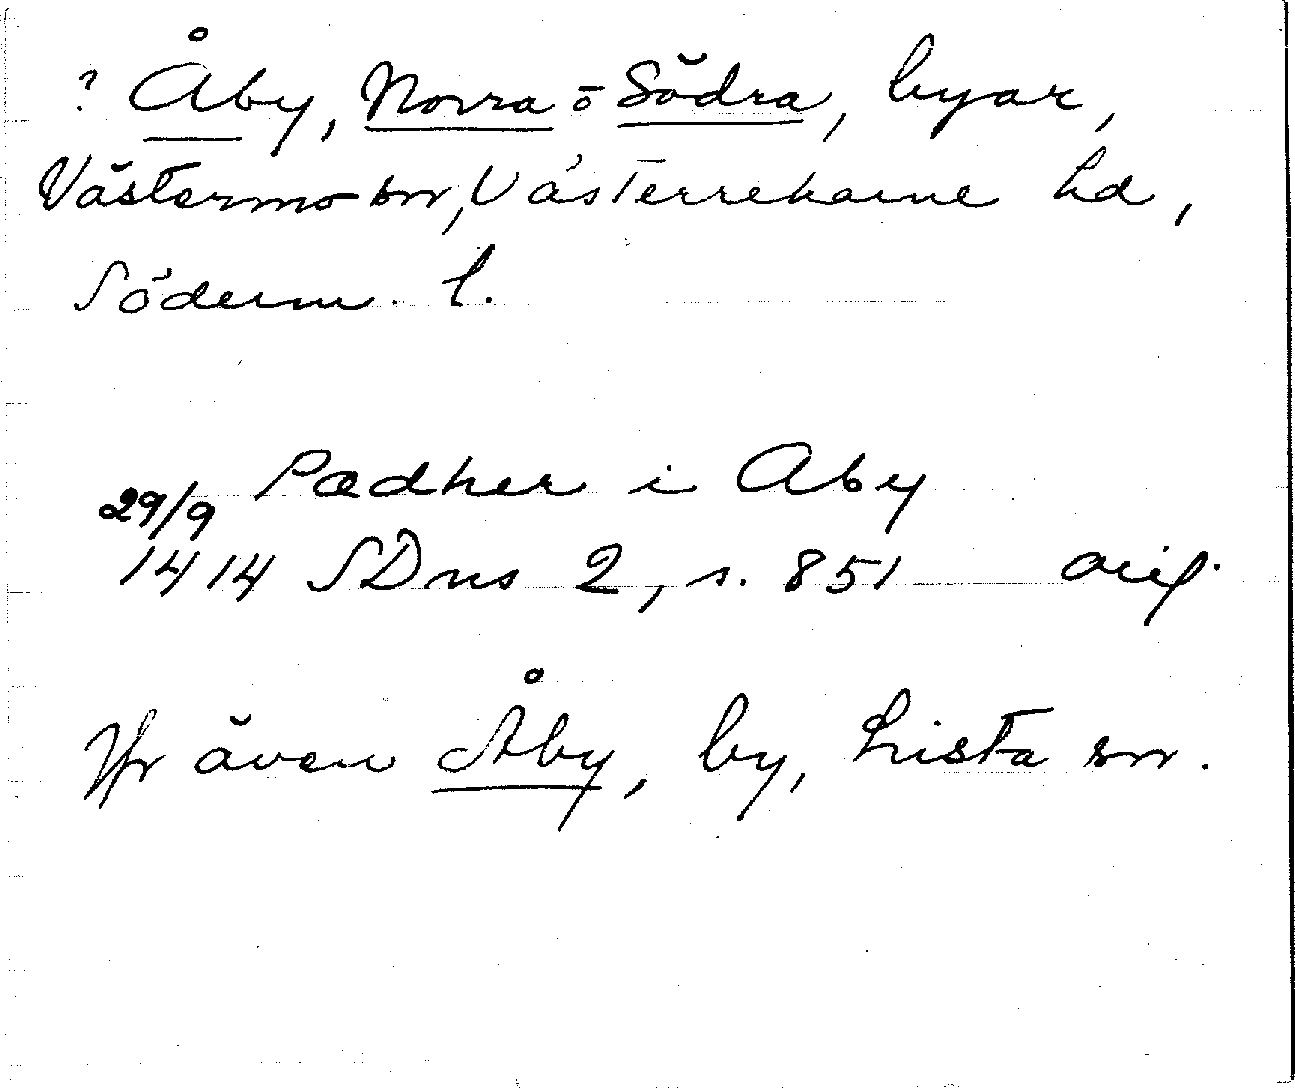 ? Åby, Norra o Södra, byar,
Västermo sn, Västerrekarne hd,
Söderm. l.
29/9 Pædher i Aby
1414 SDns 2, s. 851 orig.
Jfr även Åby, by, Lista sn.